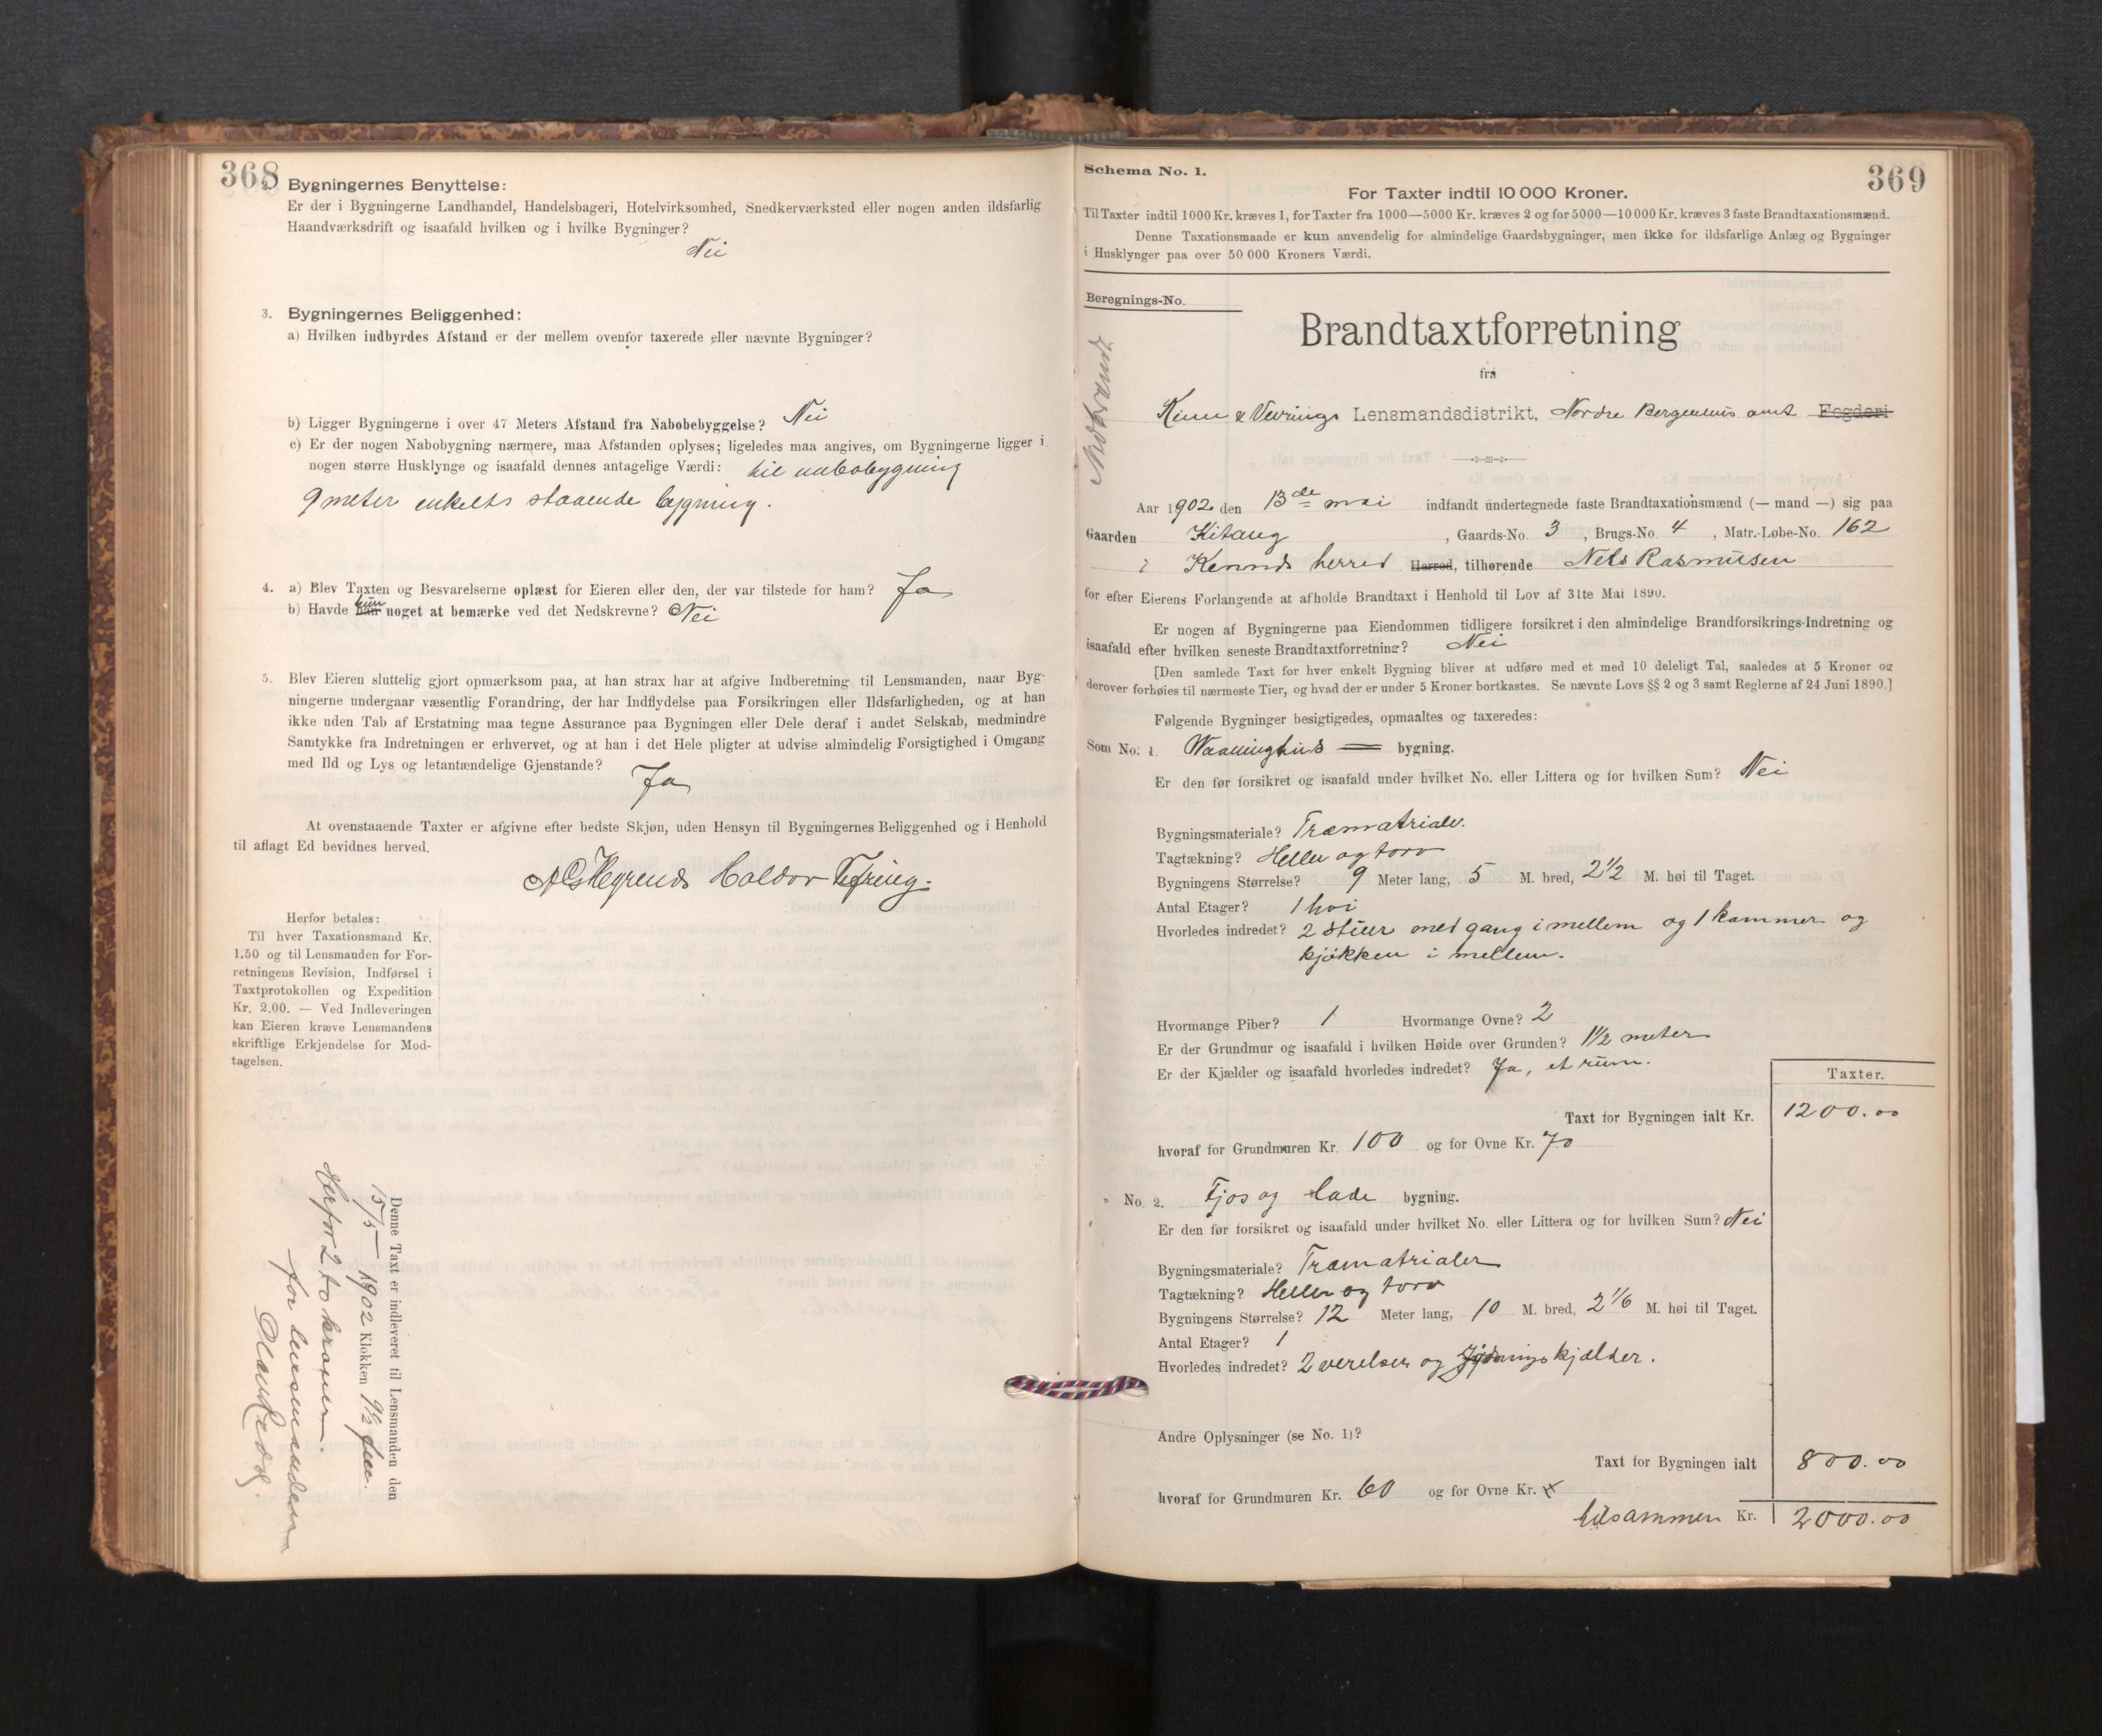 368
2. Bygningernes Benyttelse:
Er der i Bygningerne Landhandel, Handelsbageri, Hotelvirksomhed, Snedkerværksted eller nogen anden ildsfarlig
Haandværksdrift og isaafald hvilken og i hvilke Bygninger?
Nei
3. Bygningernes Beliggenhed:
a) Hvilken indbyrdes Afstand er der mellem ovenfor taxerede eller nævnte Bygninger?
b) Ligger Bygningerne i over 47 Meters Afstand fra Nabobebyggelse? Nei
c) Er der nogen Nabobygning nærmere, maa Afstanden oplyses; ligeledes maa angives, om Bygningerne ligger i
nogen større Husklynge og isaafald dennes antagelige Værdi: til nabobygning
9 meter enkelts staaende bygning.
4. a) Blev Taxten og Besvarelserne oplæst for Eieren eller den, der var tilstede for ham? Ja
b) Havde han hun noget at bemærke ved det Nedskrevne? Nei
5. Blev Eieren sluttelig gjort opmærksom paa, at han strax har at afgive Indberetning til Lensmanden, naar Byg-
ningerne undergaar væsentlig Forandring, der har Indflydelse paa Forsikringen eller Ildsfarligheden, og at han
ikke uden Tab af Erstatning maa tegne Assurance paa Bygningen eller Dele deraf i andet Selskab, medmindre
Samtykke fra Indretningen er erhvervet, og at han i det Hele pligter at udvise almindelig Forsigtighed i Omgang
med Ild og Lys og letantændelige Gjenstande?
Ja
At ovenstaaende Taxter er afgivne efter bedste Skjøn, uden Hensyn til Bygningernes Beliggenhed og i Henhold
til aflagt Ed bevidnes herved.
Haldor
Herfor betales:
Til hver Taxationsmand Kr.
1.50 og til Lensmanden for For-
retningens Revision, Indførsel i
Taxtprotokollen og Expedition
Kr. 2.00. — Ved Indleveringen
kan Eieren kræve Lensmandens
skriftlige Erkjendelse for Mod-
tagelsen.
Denne Taxt er indleveret til Lensmanden den
15/5 — 1902 Klokken 9½
Herfor 2 to kroner.
for lensmanden
369
Schema No. 1.
For Taxter indtil 10 000 Kroner.
Til Taxter indtil 1000 Kr. kræves 1, for Taxter fra 1000—5000 Kr. kræves 2 og for 5000—10 000 Kr. kræves 3 faste Brandtaxationsmænd.
Denne Taxationsmaade er kun anvendelig for almindelige Gaardsbygninger, men ikke for ildsfarlige Anlæg og Bygninger
i Husklynger paa over 50 000 Kroners Værdi.
Beregnings-No.
Brandtaxtforretning
fra
Kinn & Vevrings Lensmandsdistrikt, Nordre Bergenhus amt Fogderi
Aar 1902 den 13de mai indfandt undertegnede faste Brandtaxationsmænd (— mand —) sig paa
Gaarden Kitang, Gaards-No. 3, Brugs-No. 4, Matr.-Løbe-No. 162
i Kinnds herred Herred, tilhørende Nels Rasmussen
for efter Eierens Forlangende at afholde Brandtaxt i Henhold til Lov af 31te Mai 1890.
Er nogen af Bygningerne paa Eiendommen tidligere forsikret i den almindelige Brandforsikrings-Indretning og
isaafald efter hvilken seneste Brandtaxtforretning? Nei
[Den samlede Taxt for hver enkelt Bygning bliver at udføre med et med 10 deleligt Tal, saaledes at 5 Kroner og
derover forhøies til nærmeste Tier, og hvad der er under 5 Kroner bortkastes. Se nævnte Lovs §§ 2 og 3 samt Reglerne af 24 Juni 1890.]
Følgende Bygninger besigtigedes, opmaaltes og taxeredes:
Som No. 1. Vaaninghus — bygning.
Er den før forsikret og isaafald under hvilket No. eller Littera og for hvilken Sum? Nei
Bygningsmateriale? Træmatrialer.
Tagtækning? Heller og torv
Bygningens Størrelse? 9 Meter lang, 5 M. bred, 2½ M. høi til Taget.
Antal Etager? 1 hoi
Hvorledes indredet? 2 stuer med gang i mellem og 1 kammer og
kjøkken i mellem.
Hvormange Piber? 1 Hvormange Ovne? 2
Er der Grundmur og isaafald i hvilken Høide over Grunden? 1½ meter
Er der Kjælder og isaafald hvorledes indredet? Ja, et rum.
Taxter.
Taxt for Bygningen ialt Kr. 1200.00
hvoraf for Grundmuren Kr. 100 og for Ovne Kr. 70
" No. 2. Fjos og lade bygning.
Er den før forsikret og isaafald under hvilket No. eller Littera og for hvilken Sum? Nei
Bygningsmateriale? Træmatrialer
Tagtækning? Heller og torv
Bygningens Størrelse? 12 Meter lang, 10 M. bred, 2 1/6 M. høi til Taget.
Antal Etager? 1
Hvorledes indredet? 2 værelser og kjælder.
Andre Oplysninger (se No. 1)?
Taxt for Bygningen ialt 800.00
hvoraf for Grundmuren Kr. 60 og for Ovne Kr. x
tilsammen Kr. 2000.00